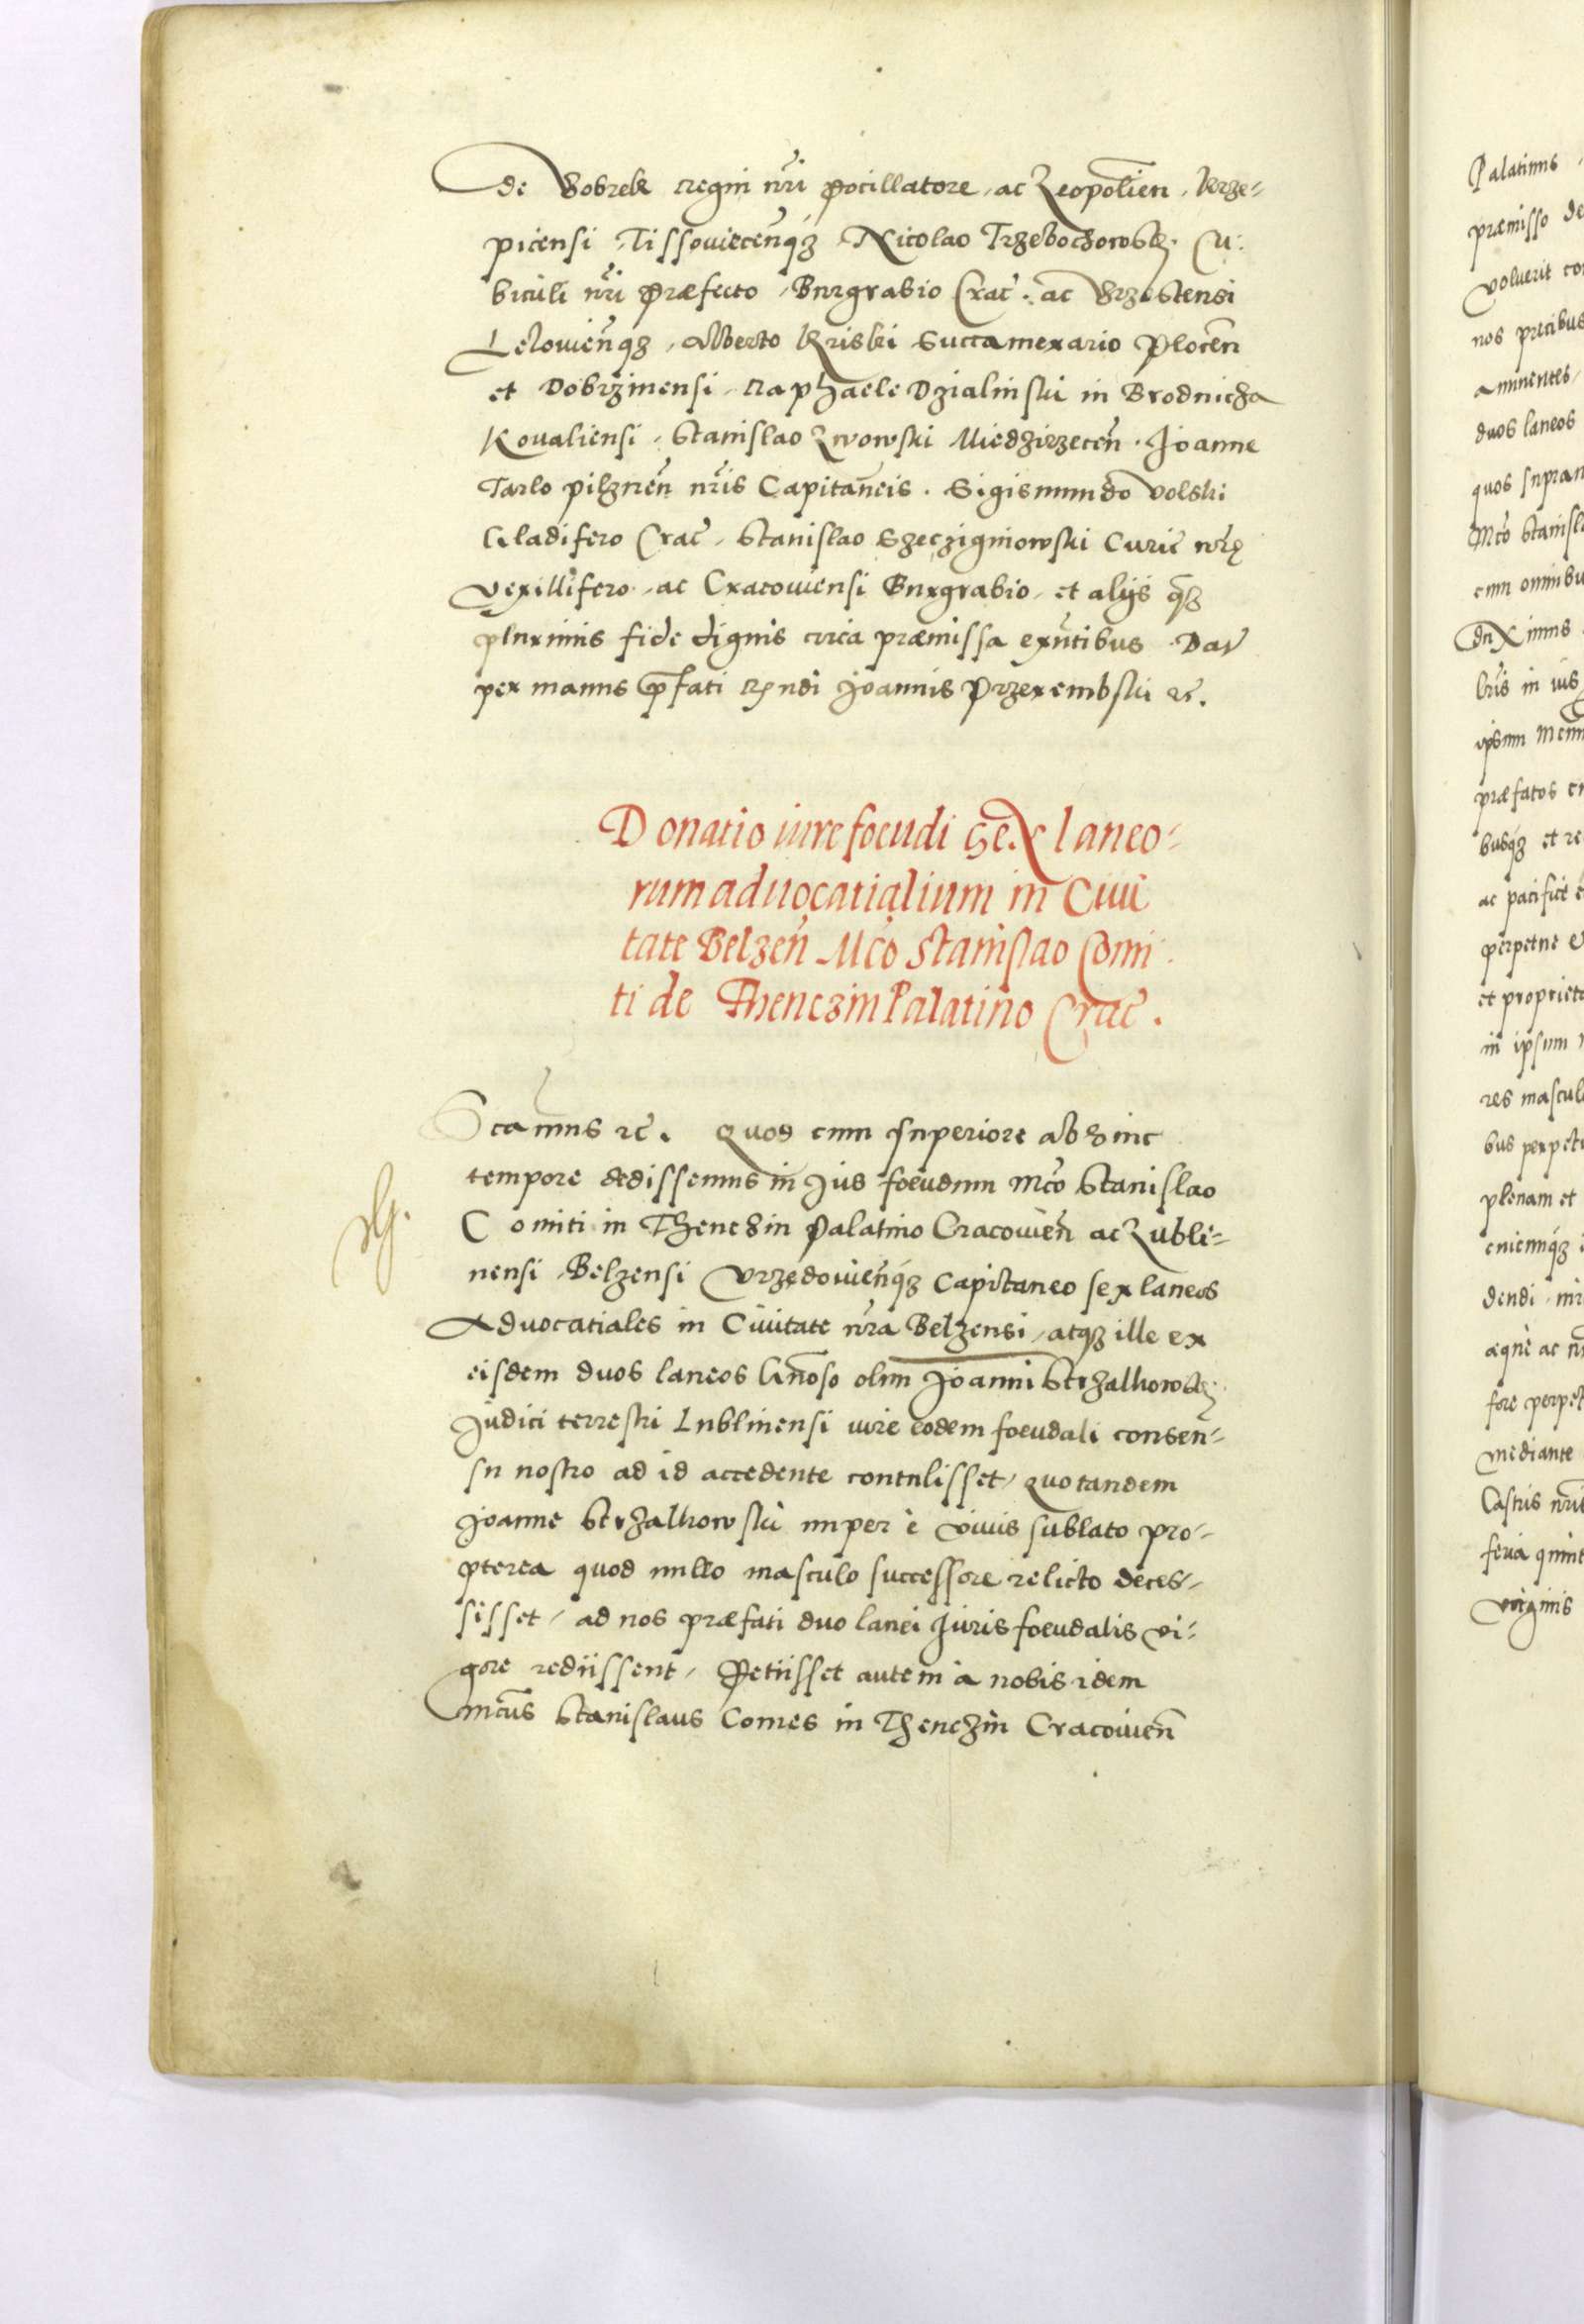 de Bobrek Regni nr̃i Pocillatore, ac Leopolien̄, Krze-
picensi, Tissoviecen̄qꝫ Nicolao Trzebochowskj Cu-
biculi nr̃i Præfecto, Burgrabio Crac̃. ac Brzestensi
Lelovien̄qꝫ, Alberto Kriski Succamerario Plocen̄
et Dobrzinensi, Raphaele Dzialinski in Brodnicza
Kovaliensi, Stanislao Lwowski Miedzirzecen̄. Joanne
Tarlo pilznen̄ nr̃is Capitaneis. Sigismundo Volski
Gladifero Crac̃, Stanislao Szeczigniowski Curiæ nr̃ę
Vexillifero, ac Cracoviensi Burgrabio, et alijs qꝫ
plurimis fide dignis circa præmissa exn̄tibus. Dat̃
per manus P̱fati Rn̄di Joannis Przerembski ec̃.
Donatio iure foeudi sex laneo-
rum advocatialium in Civi
tate Belzen̄ Mc̃o Stanislao Comi
ti de Thenczin Palatino Crac̃.
Scamus ec̃. Quod cum superiore abhinc
tempore dedissemus in Jus foeudum Mc̃o Stanislao
Comiti in Thenczin Palatino Cracovien̄ ac Lubli-
nensi, Belzensi Vrzędovien̄qꝫ Capitaneo sex laneos
Advocatiales in Civitate nr̃a Belzensi, atqꝫ ille ex
eisdem duos laneos Gn̄oso olim Joanni Strzalkowskj
Judici terrestri Lublinensi iure eodem foeudali consen-
su nostro ad id accedente contulisset, Quo tandem
Joanne Strzalkowski nuper è vivis sublato pro-
pterea quod nullo masculo successore relicto deces-
sisset, ad nos præfati duo lanei Juris foeudalis vi-
gore rediissent, Petiisset autem à nobis idem
Mc̃us Stanislaus Comes in Thenczin Cracovien̄
Palatinus
præmisso de
voluerit co
nos precibus
annuentes,
duos laneos
quos supran
Mc̃o Stanisla
cum omnibu
duximus
br̃is in vis
ipsum
præfatos
busqꝫ et re
ac pacifice
perpetue
et proprieta
in ipsum
res mascul
bus perpetu
plenam et
cuicumqꝫ
dendi
æque ac
fore perpet
mediante
Castris nr̃is
feria quint
virginis